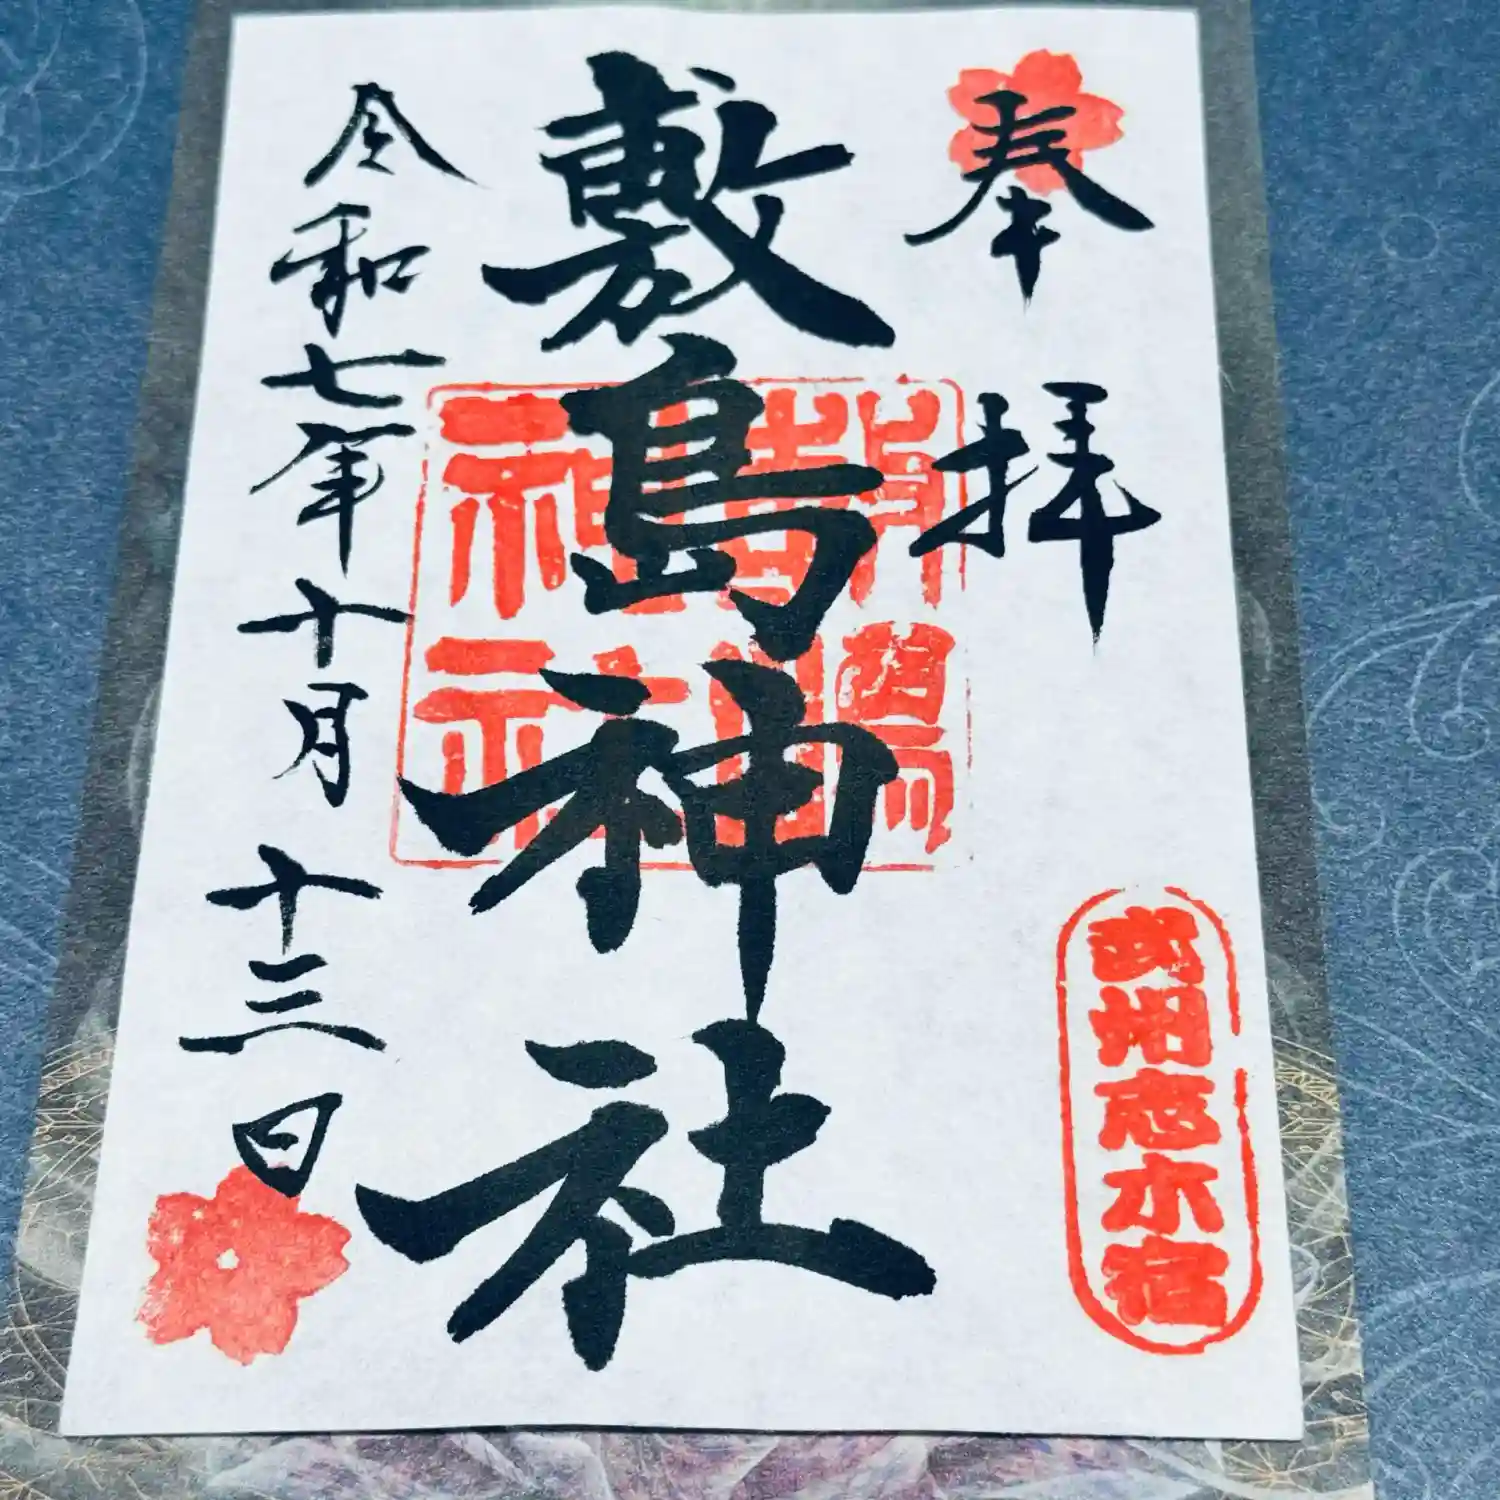 奉拝
武州志木宿
敷島神社
敷島神社
令和七年十月十三日